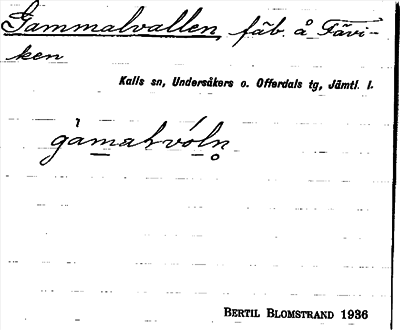 Gammalvallen, fäb. å Fävi-
ken
Kalls sn, Undersåkers o. Offerdals tg, Jämtl. l.
gàmahvóln̥
BERTIL BLOMSTRAND 1936